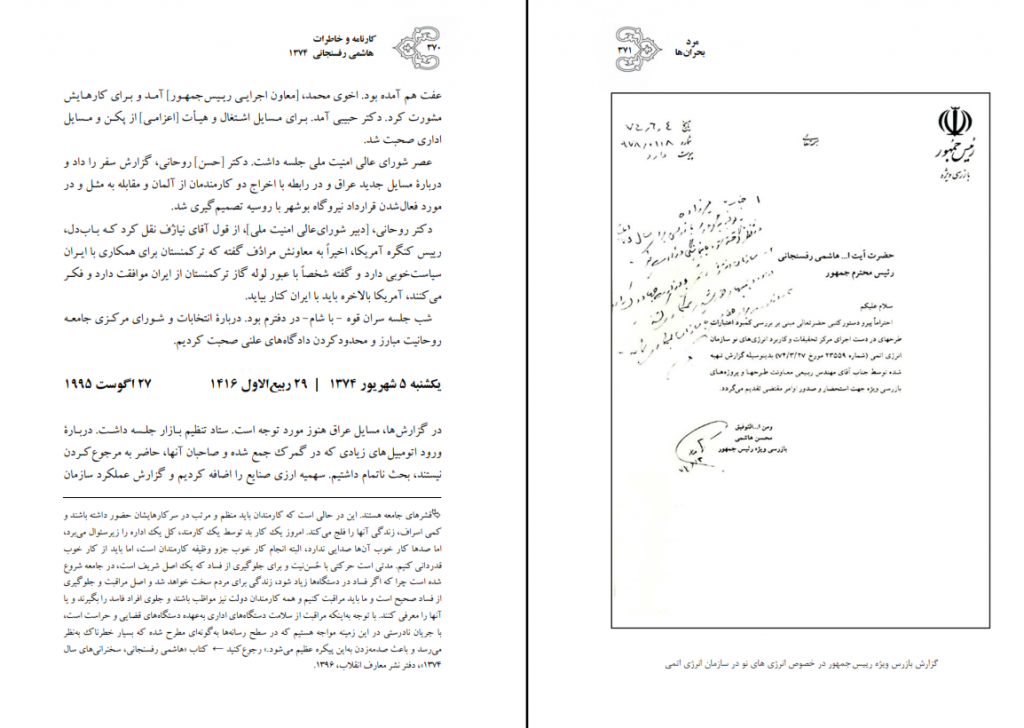 کارنامه و خاطرات
هاشمی رفسنجانی ۱۳۷۴
۳۷۰
عفت هم آمده بود. اخوی محمد، [معاون اجرایی رییس‌جمهور] آمد و برای کارهایش
مشورت کرد. دکتر حبیبی آمد. برای مسایل اشتغال و هیأت [اعزامی] از پکن و مسایل
اداری صحبت شد.
عصر شورای عالی امنیت ملی جلسه داشت. دکتر [حسن] روحانی، گزارش سفر را داد و
دربارهٔ مسایل جدید عراق و در رابطه با اخراج دو کارمندمان از آلمان و مقابله به مثل و در
مورد فعال‌شدن قرارداد نیروگاه بوشهر با روسیه تصمیم‌گیری شد.
دکتر روحانی، [دبیر شورای‌عالی امنیت ملی]، از قول آقای نیازُف نقل کرد که باب‌دل،
رییس کنگره آمریکا، اخیراً به معاونش مراذُف گفته که ترکمنستان برای همکاری با ایران
سیاست‌خوبی دارد و گفته شخصاً با عبور لوله گاز ترکمنستان از ایران موافقت دارد و فکر
می‌کنند، آمریکا بالاخره باید با ایران کنار بیاید.
شب جلسه سران قوه -با شام- در دفترم بود. دربارهٔ انتخابات و شورای مرکزی جامعه
روحانیت مبارز و محدودکردن دادگاه‌های علنی صحبت کردیم.
یکشنبه ۵ شهریور ۱۳۷۴ | ۲۹ ربیع‌الاول ۱۴۱۶ ۲۷ اگوست ۱۹۹۵
در گزارش‌ها، مسایل عراق هنوز مورد توجه است. ستاد تنظیم بازار جلسه داشت. دربارهٔ
ورود اتومبیل‌های زیادی که در گمرک جمع شده و صاحبان آنها، حاضر به مرجوع‌کردن
نیستند، بحث ناتمام داشتیم. سهمیه ارزی صنایع را اضافه کردیم و گزارش عملکرد سازمان
قشرهای جامعه هستند. این در حالی است که کارمندان باید منظم و مرتب در سرکارهایشان حضور داشته باشند و
کمی اسراف، زندگی آنها را فلج می‌کند. امروز یک کار بد توسط یک کارمند، کل یک اداره را زیرسئوال می‌برد،
اما صدها کار خوب آن‌ها صدایی ندارد، البته انجام کار خوب جزو وظیفه کارمندان است، اما باید از کار خوب
قدردانی کنیم. مدتی است حرکتی با حُسن‌نیت و برای جلوگیری از فساد که یک اصل شریف است، در جامعه شروع
شده است چرا که اگر فساد در دستگاه‌ها زیاد شود، زندگی برای مردم سخت خواهد شد و اصل مراقبت و جلوگیری
از فساد صحیح است و ما باید مراقبت کنیم و همه کارمندان دولت نیز مواظب باشند و جلوی افراد فاسد را بگیرند و یا
آنها را معرفی کنند. با توجه به‌اینکه مراقبت از سلامت دستگاه‌های اداری به‌عهده دستگاه‌های قضایی و حراست است،
با جریان نادرستی در این زمینه مواجه هستیم که در سطح رسانه‌ها به‌گونه‌ای مطرح شده که بسیار خطرناک به‌نظر
می‌رسد و باعث صدمه‌زدن به‌این پیکره عظیم می‌شود.» رجوع‌کنید ← کتاب «هاشمی رفسنجانی، سخنرانی‌های سال
۱۳۷۴»، دفتر نشر معارف انقلاب، ۱۳۹۶.
مرد
بحران‌ها
۳۷۱
رئیس جمهور
بازرسی ویژه
تاریخ
شماره
پیوست دارد
حضرت آیت ا... هاشمی رفسنجانی
رئیس محترم جمهور
سلام علیکم
احتراماً پیرو دستور کتبی حضرتعالی مبنی بر بررسی کمبود اعتبارات
طرحهای در دست اجرای مرکز تحقیقات و کاربرد انرژی‌های نو سازمان
انرژی اتمی (شماره ۲۳۵۵۹ مورخ ۷۴/۳/۲۷) بدینوسیله گزارش تهیه
شده توسط جناب آقای مهندس ربیعی معاونت طرحها و پروژه‌های
بازرسی ویژه جهت استحضار و صدور اوامر مقتضی تقدیم می‌گردد.
ومن ا... التوفیق
محسن هاشمی
بازرسی ویژه رئیس جمهور
گزارش بازرس ویژه رییس جمهور در خصوص انرژی های نو در سازمان انرژی اتمی